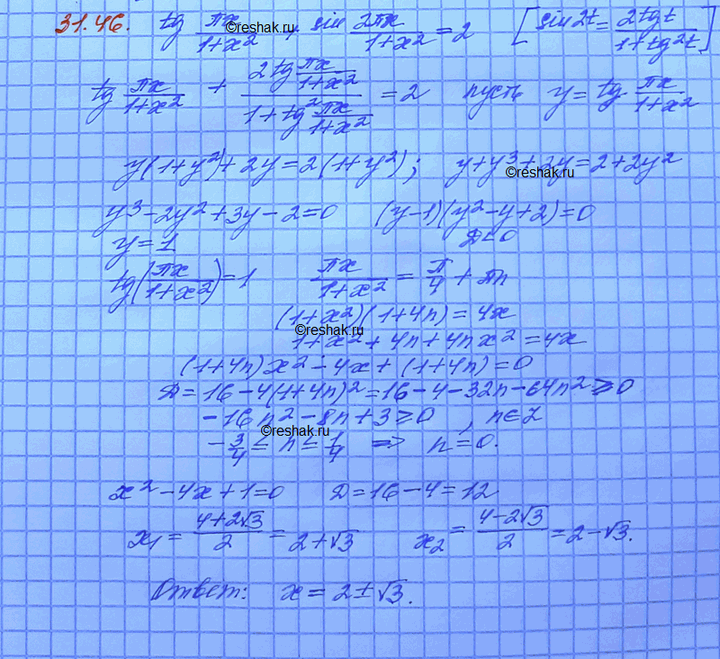 31.46. tg πx/(1+x²) + sin 2πx/(1+x²) = 2 [sin2t = 2tgt/(1+tg²t)]
©reshak.ru
tg πx/(1+x²) + (2tg πx/(1+x²))/(1+tg² πx/(1+x²)) = 2 пусть y = tg πx/(1+x²)
y(1+y²)+2y=2(1+y²); y+y³+2y=2+2y²
©reshak.ru
y³-2y²+3y-2=0 (y-1)(y²-y+2)=0
y=1 D<0
tg(πx/(1+x²))=1 πx/(1+x²) = π/4 + πn
(1+x²)(1+4n)=4x
©reshak.ru
1+x²+4n+4nx²=4x
(1+4n)x²-4x+(1+4n)=0
D=16-4(1+4n)²=16-4-32n-64n²≥0
-16n²-8n+3≥0, n∈Z
©reshak.ru
-3/4 ≤ n ≤ 1/4 => n=0.
x²-4x+1=0 D=16-4=12
x₁ = (4+2√3)/2 = 2+√3 x₂ = (4-2√3)/2 = 2-√3.
Ответ: x = 2±√3.